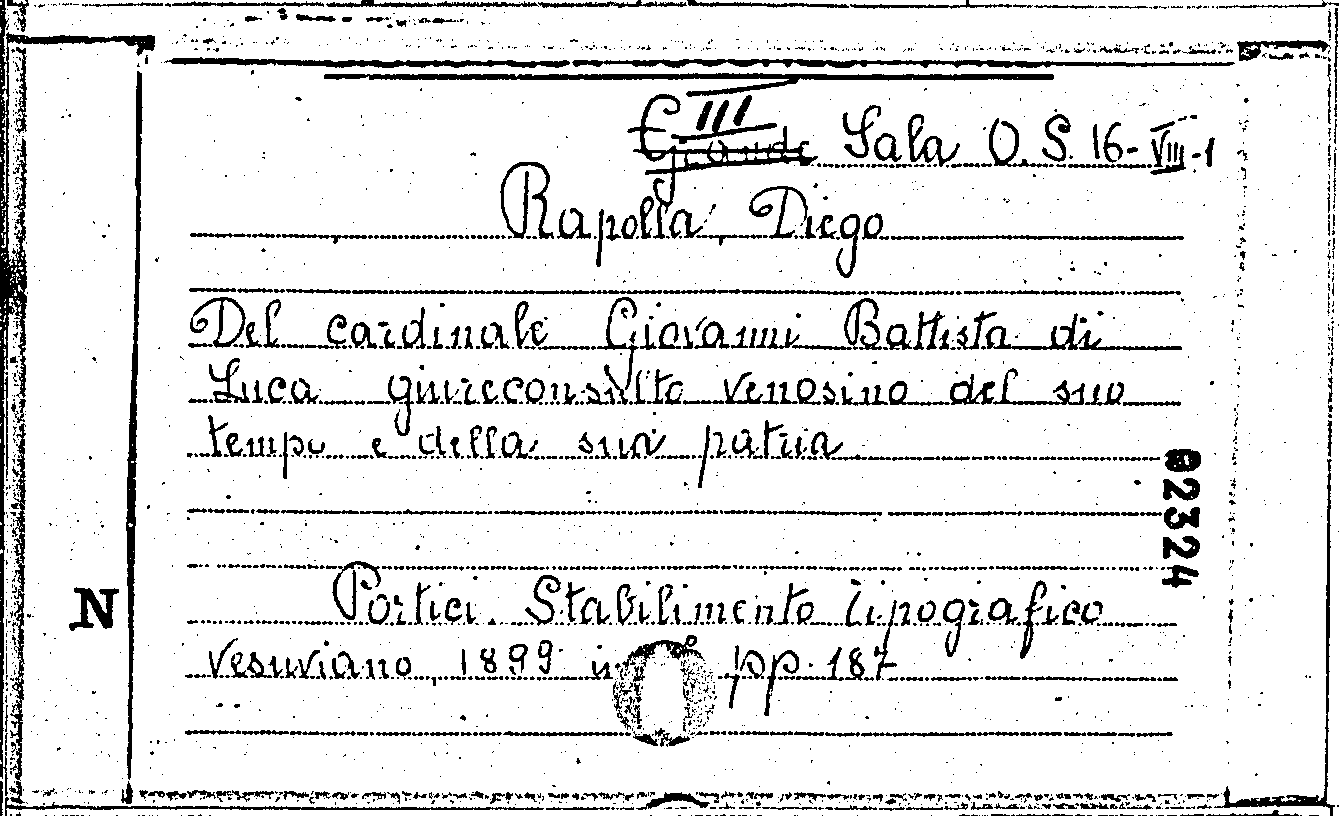 III
Grande Sala O.S. 16-VIII-1
Rapolla, Diego
Del cardinale Giovanni Battista di
Luca giureconsulto venosino del suo
tempo e della sua patria.
02324
Portici. Stabilimento tipografico
N
vesuviano, 1899 in ° pp. 187